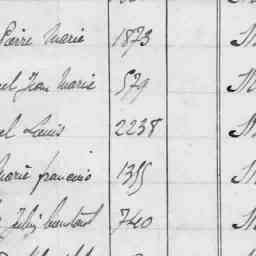 Pierre Marie 1873 M
el Jean Marie 579 M
el Louis 2238 M
Marie francois 1355 M
Julien 740 M